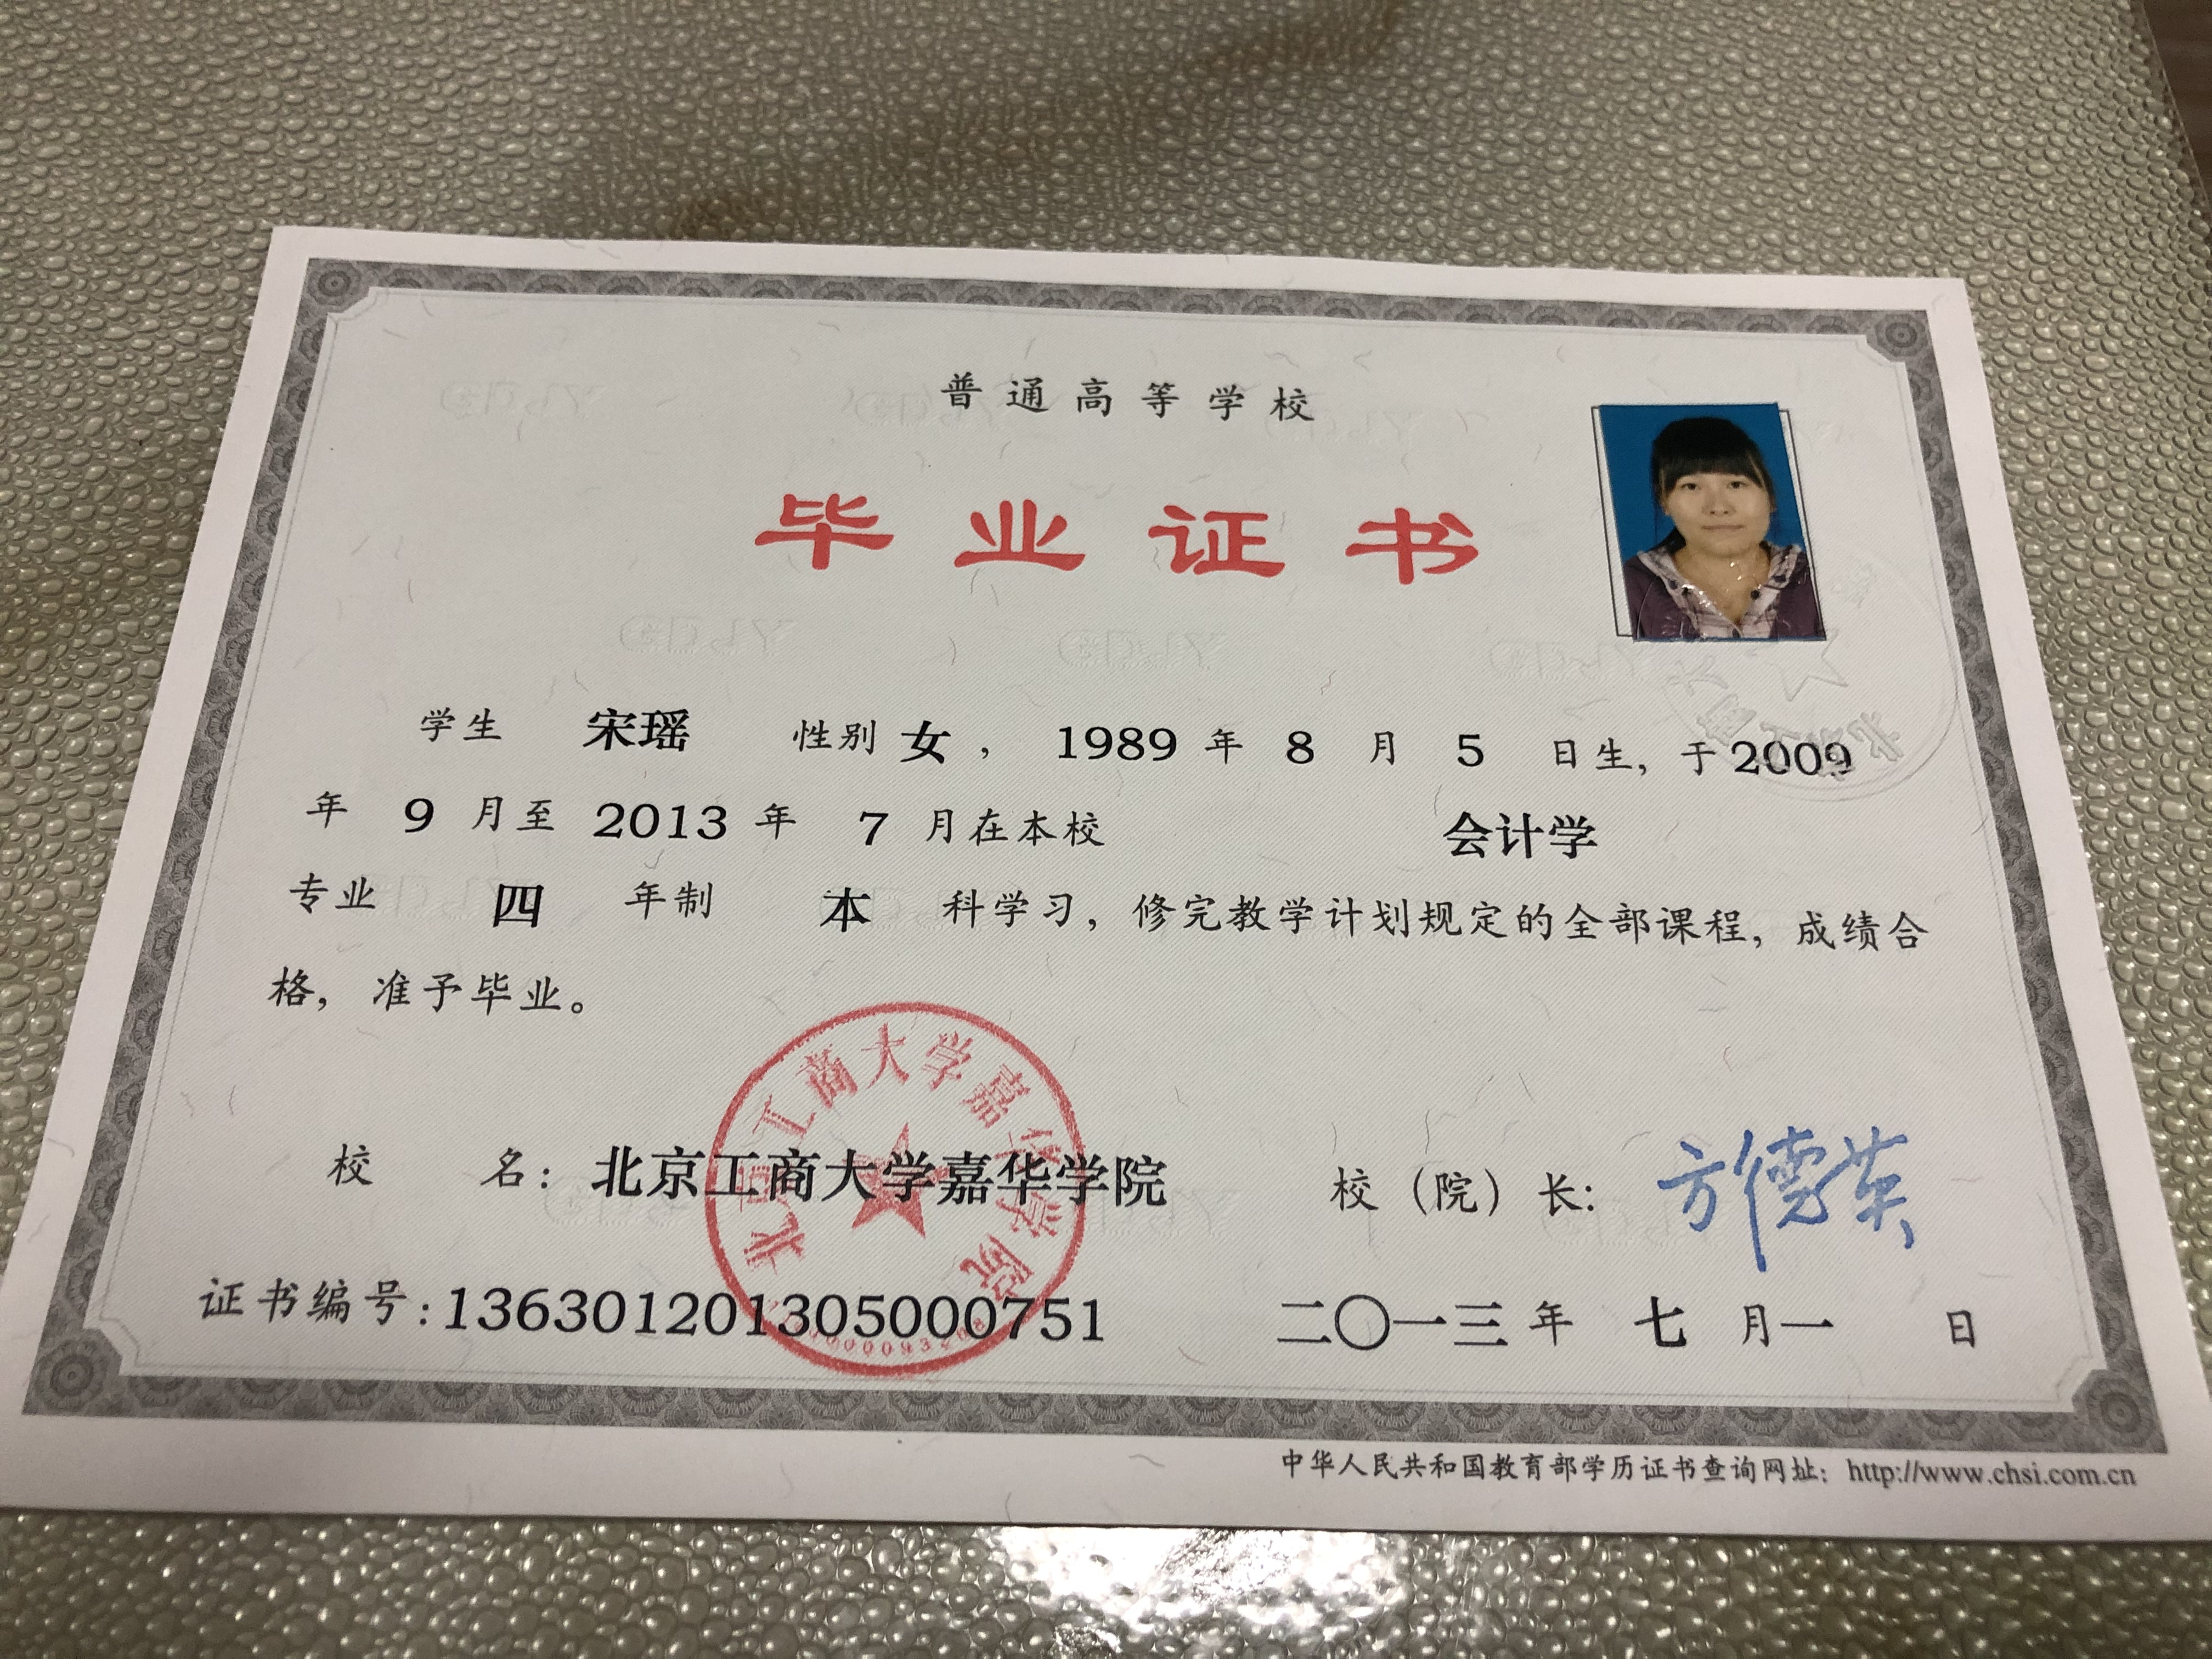 普通高等学校
毕业证书
学生 宋瑶 性别 女， 1989 年 8 月 5 日生，于 2009
年 9 月至 2013 年 7 月在本校 会计学
专业 四 年制 本 科学习，修完教学计划规定的全部课程，成绩合
格，准予毕业。
北京工商大学嘉华学院
校 名：北京工商大学嘉华学院
校（院）长：方德英
证书编号：136301201305000751
二〇一三年 七 月一 日
中华人民共和国教育部学历证书查询网址：http://www.chsi.com.cn